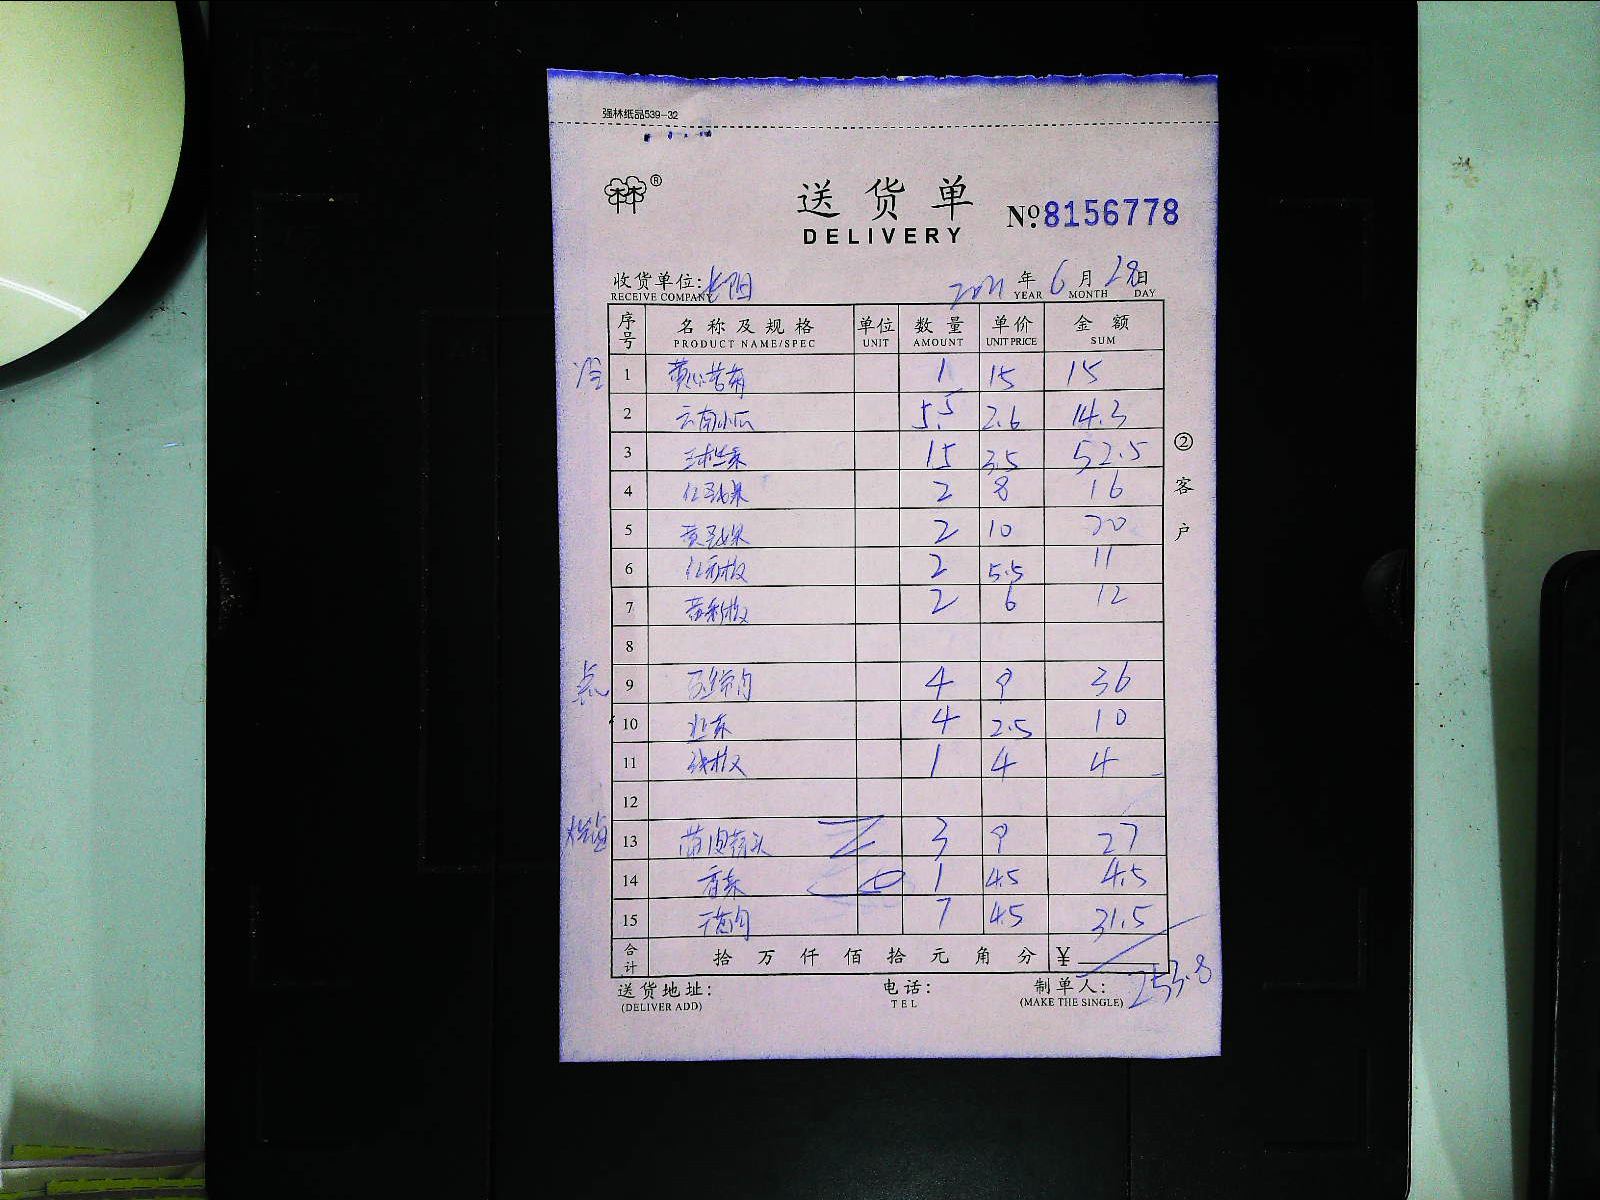 强林纸品539-32
®
送货单
DELIVERY
№8156778
收货单位:长阳 2021年6月28日
RECEIVE COMPANY YEAR MONTH DAY
序号 名称及规格 单位 数量 单价 金额
PRODUCT NAME/SPEC UNIT AMOUNT UNIT PRICE SUM
冷 1 黄心苦菊 1 15 15
2 云南小瓜 5.5 2.6 14.3
3 15 3.5 52.5
4 红圣女果 2 8 16
5 黄圣女果 2 10 20
6 红彩椒 2 5.5 11
7 黄彩椒 2 6 12
8
点 9 4 9 36
10 4 2.5 10
11 线椒 1 4 4
12
13 3 9 27
14 香菜 1 4.5 4.5
15 7 4.5 31.5
合计 拾万仟佰拾元角分 ¥ 253.8
送货地址: 电话: 制单人:
(DELIVER ADD) TEL (MAKE THE SINGLE)
②客户